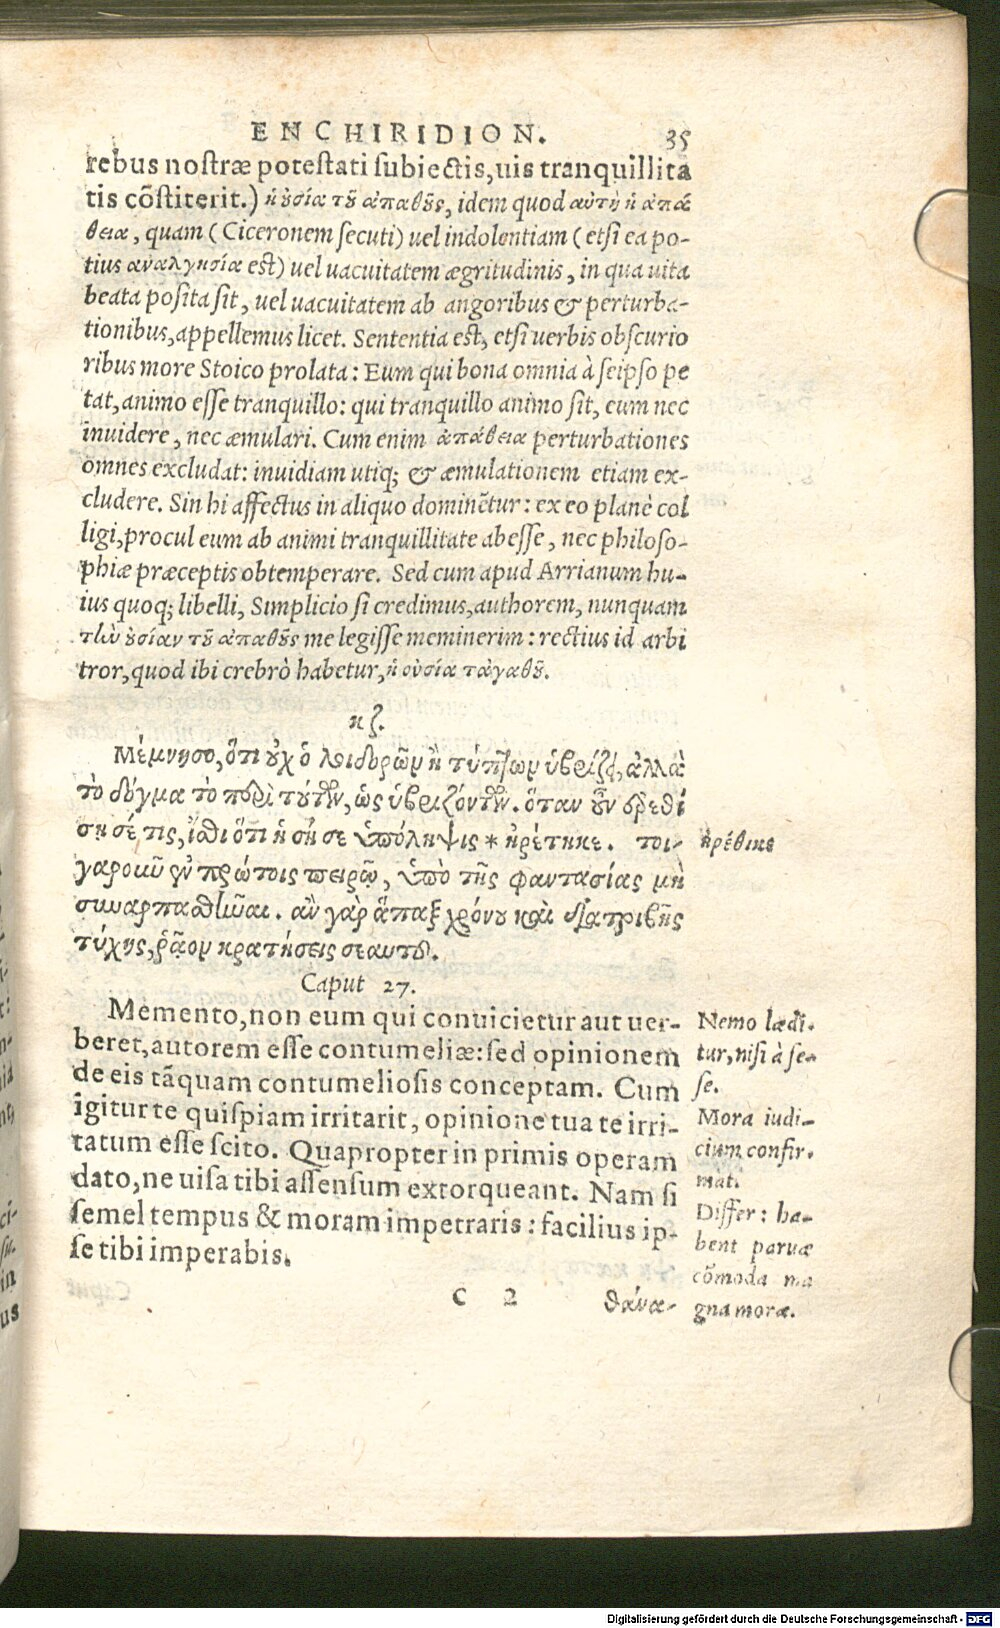 ENCHIRIDION. 35
rebus nostræ potestati subiectis, uis tranquillita
tis cõstiterit.) ἡ ὐσία τῦ ἀπαθῦς, idem quod αὐτὴ ἡ ἀπά
θεια, quam (Ciceronem secuti) uel indolentiam (etsi ea po-
tius ἀναλγησία est) uel uacuitatem ægritudinis, in qua uita
beata posita sit, uel uacuitatem ab angoribus & perturba-
tionibus, appellemus licet. Sententia est, etsi uerbis obscurio
ribus more Stoico prolata: Eum qui bona omnia à seipso pe
tat, animo esse tranquillo: qui tranquillo animo sit, eum nec
inuidere, nec æmulari. Cum enim ἀπάθεια perturbationes
omnes excludat: inuidiam utiq; & æmulationem etiam ex-
cludere. Sin hi affectus in aliquo dominẽtur: ex eo planè col
ligi, procul eum ab animi tranquillitate abesse, nec philoso-
phiæ præceptis obtemperare. Sed cum apud Arrianum hu-
ius quoq; libelli, Simplicio si credimus, authorem, nunquam
τὴν ὐσίαν τῦ ἀπαθῦς me legisse meminerim: rectius id arbi
tror, quod ibi crebrò habetur, ἡ οὐσία τἀγαθῦ.
κζ.
Μέμνησο, ὅτι ὐχ ὁ λοιδορῶν ἢ τύπτων ὑβρίζει, ἀλλὰ
τὸ δόγμα τὸ περὶ τύτων, ὡς ὑβριζόντων. ὅταν ὖν ἐρεθί
σῃ σέ τις, ἴσθι ὅτι ἡ σή σε ὑπόληψις * ἠρέτηκε. τοι-
γαροῦν ἐν πρώτοις πειρῶ, ὑπὸ τῆς φαντασίας μὴ
συναρπασθῆναι. ἂν γὰρ ἅπαξ χρόνυ καὶ διατριβῆς
τύχῃς, ῥᾷον κρατήσεις σεαυτῦ.
ἠρέθικε
Caput 27.
Memento, non eum qui conuicietur aut uer-
beret, autorem esse contumeliæ: sed opinionem
de eis tãquam contumeliosis conceptam. Cum
igitur te quispiam irritarit, opinione tua te irri-
tatum esse scito. Quapropter in primis operam
dato, ne uisa tibi assensum extorqueant. Nam si
semel tempus & moram impetraris: facilius ip-
se tibi imperabis.
Nemo lædi-
tur, nisi à se-
se.
Mora iudi-
cium confir-
mat.
Differ: ha-
bent paruæ
cõmoda ma
gna moræ.
C 2 θάνα-
Digitalisierung gefördert durch die Deutsche Forschungsgemeinschaft - DFG